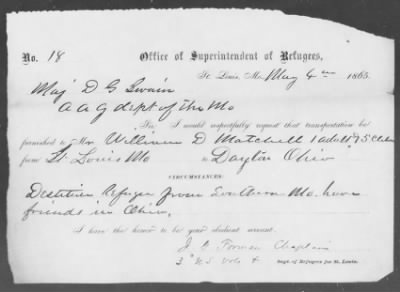 No. 18 Office of Superintendent of Refugees,
St. Louis, Mo. May 4th 1865.
Maj D G Swain
A A G dept of the Mo
Sir, I would respectfully request that transportation be
furnished to Mr. William D Matchell 1 adult & 5 Chldn
from St Louis Mo to Dayton Ohio
CIRCUMSTANCES:
Destitute Refugee from Southern Mo. have
friends in Ohio,
I have the honor to be your obedient servant,
J. G. Forman Chaplain
3d U S Vols &
Supt. of Refugees for St. Louis.